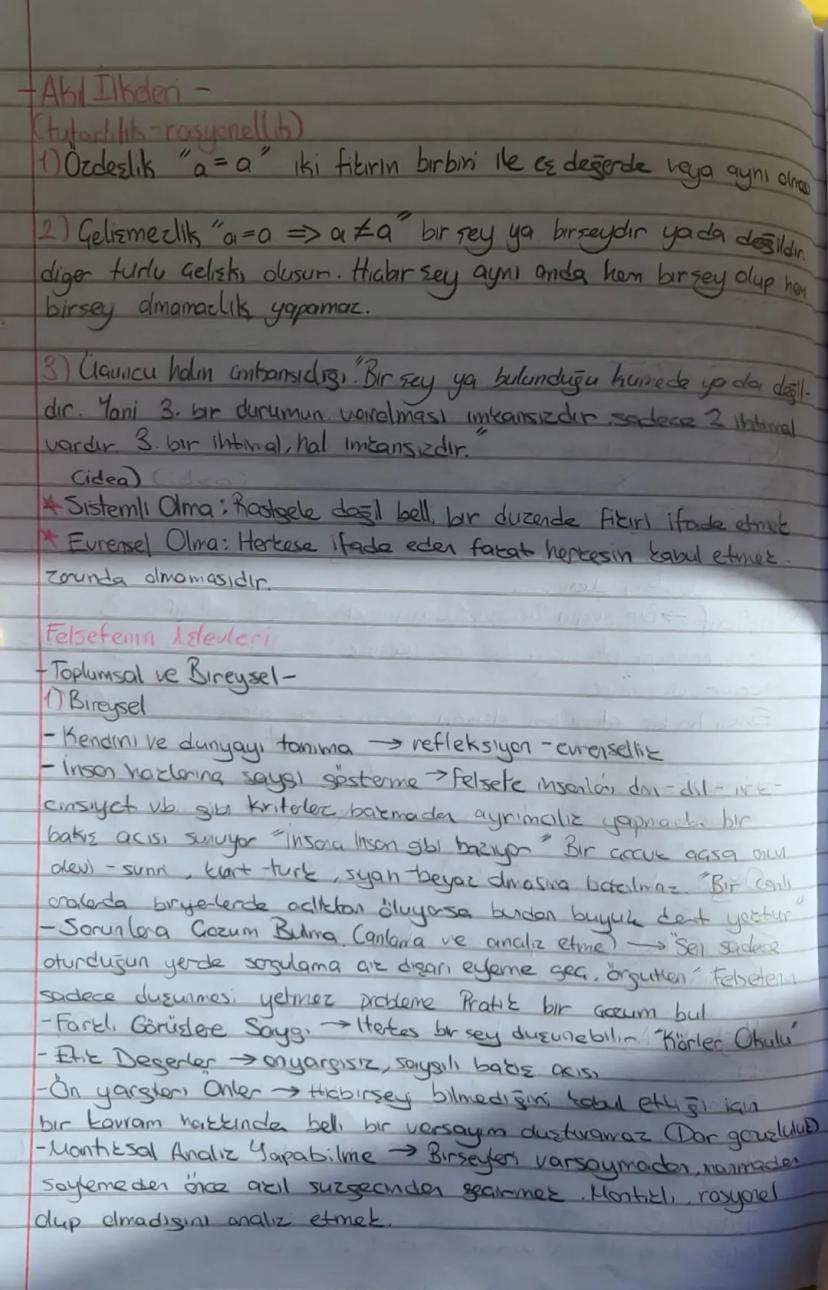 - Akıl İlkeleri -
(tutarlılık-rasyonellik)
1) Özdeşlik "a = a" iki fikirin birbiri ile eş değerde veya aynı olması
2) Çelişmezlik "a=a ⇒ a≠a" bir şey ya birşeydir yada değildir.
diğer turlu çelişki olusur. Hiçbir şey aynı anda hem bir şey olup hem
birsey olmamazlık yapamaz.
3) Üçüncu halın imkansızlığı "Bir şey ya bulunduğu kumede ya da değil-
dir. Yani 3. bir durumun varolması imkansızdır sadece 2 ihtimal
vardır 3. bir ihtimal, hal imkansızdır."
(idea)
* Sistemli Olma: Rastgele değil belli bir duzende fikiri ifade etmek
* Evrensel Olma: Herkese ifade eden fakat herkesin kabul etmek
zorunda olmamasıdır.
Felsefenin İşlevleri
- Toplumsal ve Bireysel -
1) Bireysel
- Kendini ve dunyayı tanıma → refleksiyon - evrensellik
- İnsan haklarına saygı gösterme → Felsefe insanları din - dil - ırk -
cinsiyet vb. gibi kriterlere bakmadan ayrımcılık yapmadan bir
bakış acısı sunuyor "insana insan gibi bakıyor" Bir cocuk açsa onun
alevi - sunni, kürt - turk, siyah - beyaz olmasına bakılmaz. "Bir canlı
oralarda biryerlerde açlıktan ölüyorsa bundan buyuk dert yoktur"
- Sorunlara Cozum Bulma (anlama ve analiz etme) → "Sen sadece
oturduğun yerde sorgulama çık dışarı eyleme geç, örgütlen" Felsefenin
sadece duşunmesi yetmez probleme Pratik bir çozum bul
- Farklı Görüşlere Saygı → Herkes bir sey duşunebilir "Körler Okulu"
- Etik Degerler → onyargısız, saygılı bakış acısı
- Ön yargıları Önler → Hicbirseyi bilmediğini kabul ettiği için
bir kavram hakkında belli bir varsayım oluşturamaz (Dar goruşluluk)
- Mantıksal Analiz Yapabilme → Birseyleri varsaymadan, inanmadan
soylemeden önce akıl suzgecinden geçirmek. Mantıklı, rasyonel
olup olmadıgını analiz etmek.